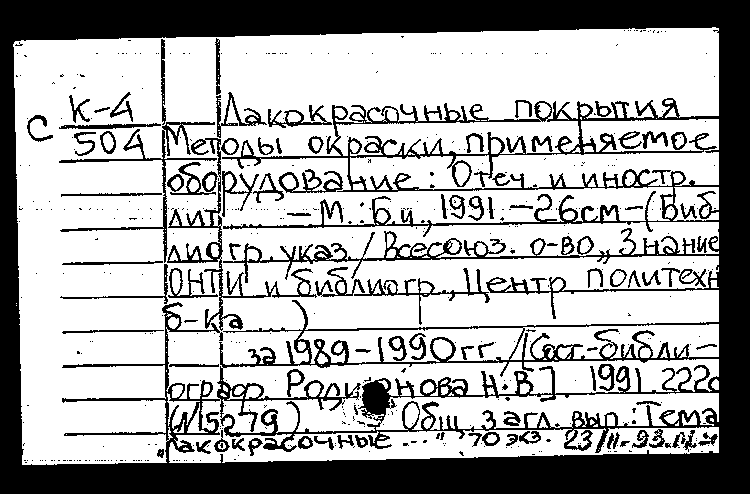 С К-4
504
Лакокрасочные покрытия
Методы окраски, применяемое
оборудование: Отеч. и иностр.
лит.... – М.: Б.и., 1991. – 26см – (Биб-
лиогр. указ. / Всесоюз. о-во „Знание
ОНТИ и библиогр., Центр. политехн
б-ка ...)
за 1989–1990гг. / [Сост.-библи-
ограф. Родионова Н.В]. 1991. 222с
(N15279). Общ. загл. вып.: Тема
„Лакокрасочные ..." 70 экз. 23/II-93.